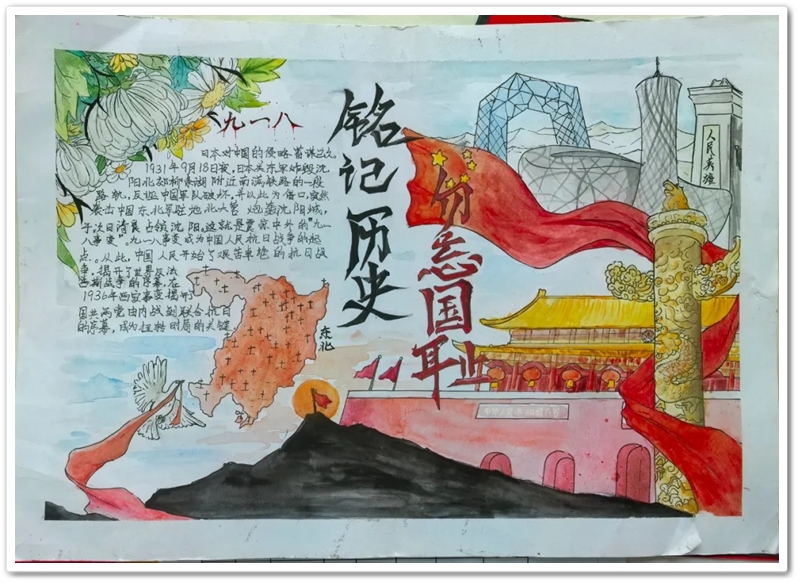 九一八
日本对中国的侵略蓄谋已久
1931年9月18日夜,日本关东军炸毁沈
阳北郊柳条湖附近南满铁路的一段
路轨,反诬中国军队破坏,并以此为借口,突然
袭击中国东北军驻地北大营 炮轰沈阳城,
于次日清晨占领沈阳。这就是震惊中外的“九一
八事变”。九一八事变成为中国人民抗日战争的起
点。从此,中国人民开始了艰苦卓绝的抗日战
争,揭开了世界反法
西斯战争的序幕。在
1936年西安事变揭开
国共两党由内战到联合抗日
的序幕,成为扭转时局的关键
铭记历史
勿忘国耻
东北
人民英雄